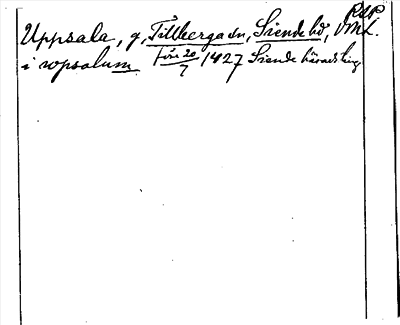 RAP
Uppsala, g, Tillberga sn, Siende hd, Vml.
i wpsalum före 20/7 1427 Siende häradsting